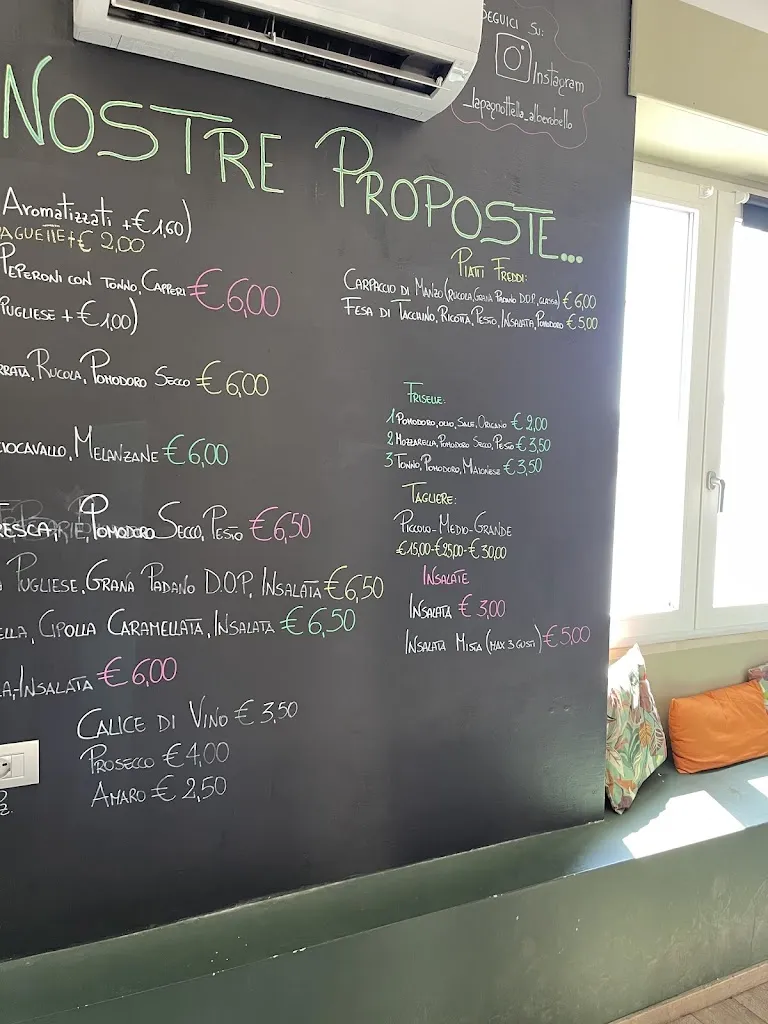 SEGUICI SU:
Instagram
_lapagnottella_alberobello
NOSTRE PROPOSTE...
Aromatizzati +€ 1,60)
AGUETTE+€ 2,00
PEPERONI CON TONNO, CAPPERI €6,00
PUGLIESE + €1,00)
RRATA, RUCOLA, POMODORO SECCO €6,00
IOCAVALLO, MELANZANE €6,00
RESCA, POMODORO SECCO, PESTO €6,50
PUGLIESE, GRANA PADANO D.O.P, INSALATA €6,50
ELLA, CIPOLLA CARAMELLATA, INSALATA €6,50
LA, INSALATA €6,00
CALICE DI VINO €3,50
PROSECCO €4,00
AMARO €2,50
PIATTI FREDDI:
CARPACCIO DI MANZO (RUCOLA, GRANA PADANO D.O.P, GLASSA) €6,00
FESA DI TACCHINO, RICOTTA, PESTO, INSALATA, POMODORO €5,00
FRISELLE:
1 POMODORO, OLIO, SALE, ORIGANO €2,00
2 MOZZARELLA, POMODORO SECCO, PESTO €3,50
3 TONNO, POMODORO, MAIONESE €3,50
TAGLIERE:
PICCOLO-MEDIO-GRANDE
€15,00-€25,00-€30,00
INSALATE
INSALATA €3,00
INSALATA MISTA (MAX 3 GUSTI) €5,00